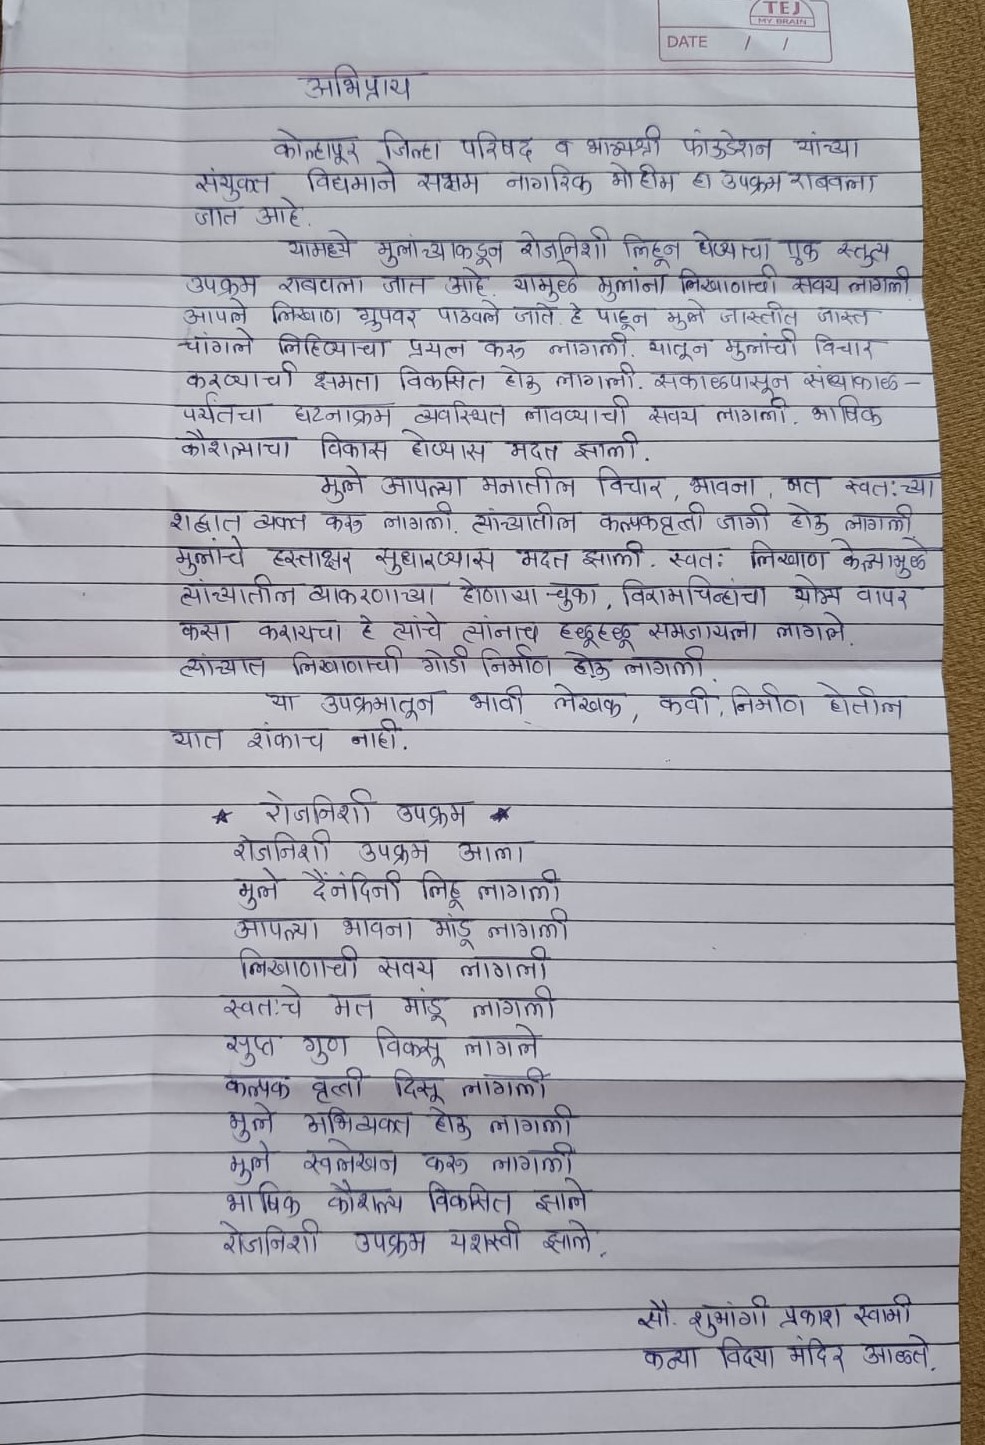 TEJ
MY BRAIN
DATE / /
अभिप्राय
कोल्हापूर जिल्हा परिषद व भाग्यश्री फांऊडेशन यांच्या
संयुक्त विद्यमाने सक्षम नागरिक मोहीम हा उपक्रम राबवला
जात आहे.
यामध्ये मुलांच्याकडून रोजनिशी लिहून घेण्याचा एक स्तुत्य
उपक्रम राबवला जात आहे. यामुळे मुलांना लिखाणाची सवय लागली.
आपले लिखाण ग्रुपवर पाठवले जाते. हे पाहून मुले जास्तीत जास्त
चांगले लिहिण्याचा प्रयत्न करू लागली. यातून मुलांची विचार
करण्याची क्षमता विकसित होऊ लागली. सकाळपासून संध्याकाळ -
पर्यंतचा घटनाक्रम व्यवस्थित लावण्याची सवय लागली. भाषिक
कौशल्याचा विकास होण्यास मदत झाली.
मुले आपल्या मनातील विचार, भावना, मत स्वतःच्या
शद्बात व्यक्त करू लागली. त्यांच्यातील कल्पकवृत्ती जागी होऊ लागली
मुलांचे हस्ताक्षर सुधारण्यास मदत झाली. स्वतः लिखाण केल्यामुळे
त्यांच्यातील व्याकरणाच्या होणाऱ्या चुका, विरामचिन्हांचा योग्य वापर
कसा करायचा हे त्यांचे त्यांनाच हळूहळू समजायला लागले.
त्यांच्यात लिखाणाची गोडी निर्माण होऊ लागली.
या उपक्रमातून भावी लेखक, कवी, निर्माण होतील
यात शंकाच नाही.
* रोजनिशी उपक्रम *
रोजनिशी उपक्रम आला
मुले दैंनंदिनी लिहू लागली
आपल्या भावना मांडू लागली
लिखाणाची सवय लागली
स्वतःचे मत मांडू लागली
सुप्त गुण विकसू लागले
कल्पक वृत्ती दिसू लागली
मुले अभिव्यक्त होऊ लागली
मुले स्वलेखन करू लागली
भाषिक कौशल्य विकसित झाले
रोजनिशी उपक्रम यशस्वी झाले.
सौ. शुभांगी प्रकाश स्वामी
कन्या विद्या मंदिर आळते.